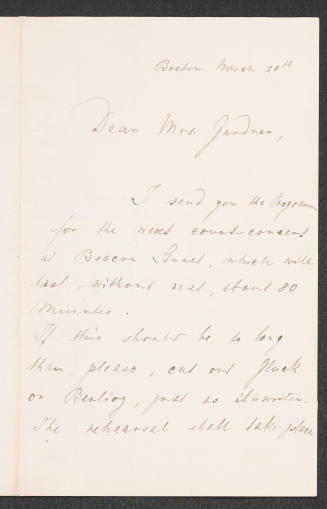 Boston March 20th
Dear Mrs. Gardner,
I send you the Programm
for the next court-concert
at Beacon Street, which will
last, without rest, about 80
Minutes.
If this should be to long
than, please, cut out Gluck
or Berlioz, just as it is written.
The rehearsal shall take place